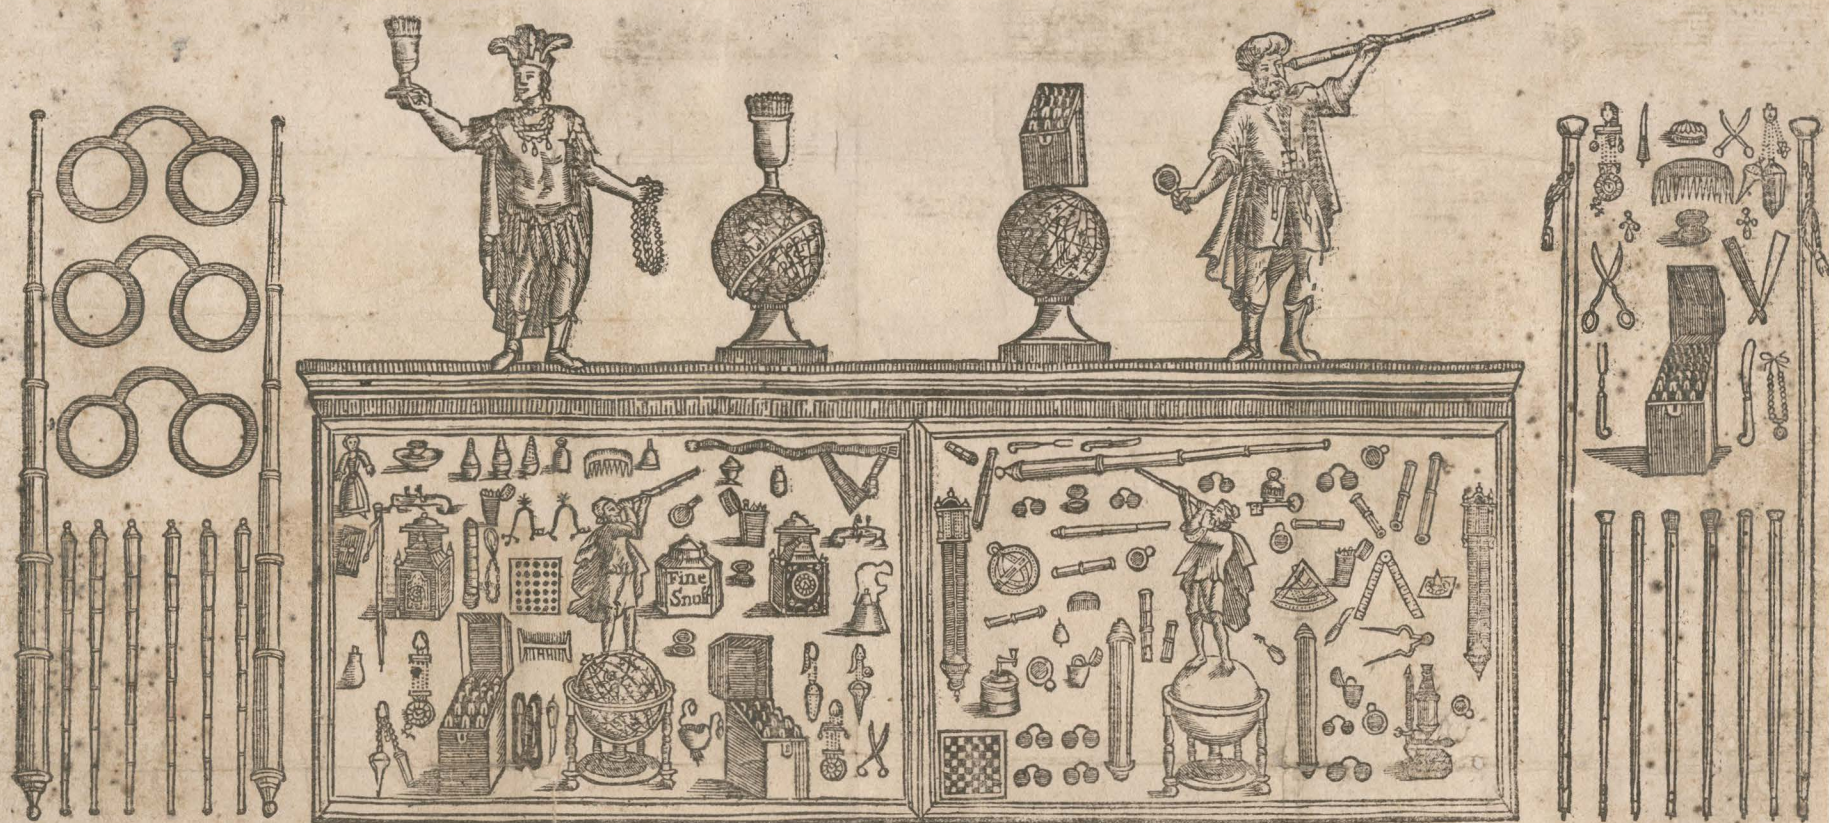 Fine
Snuff